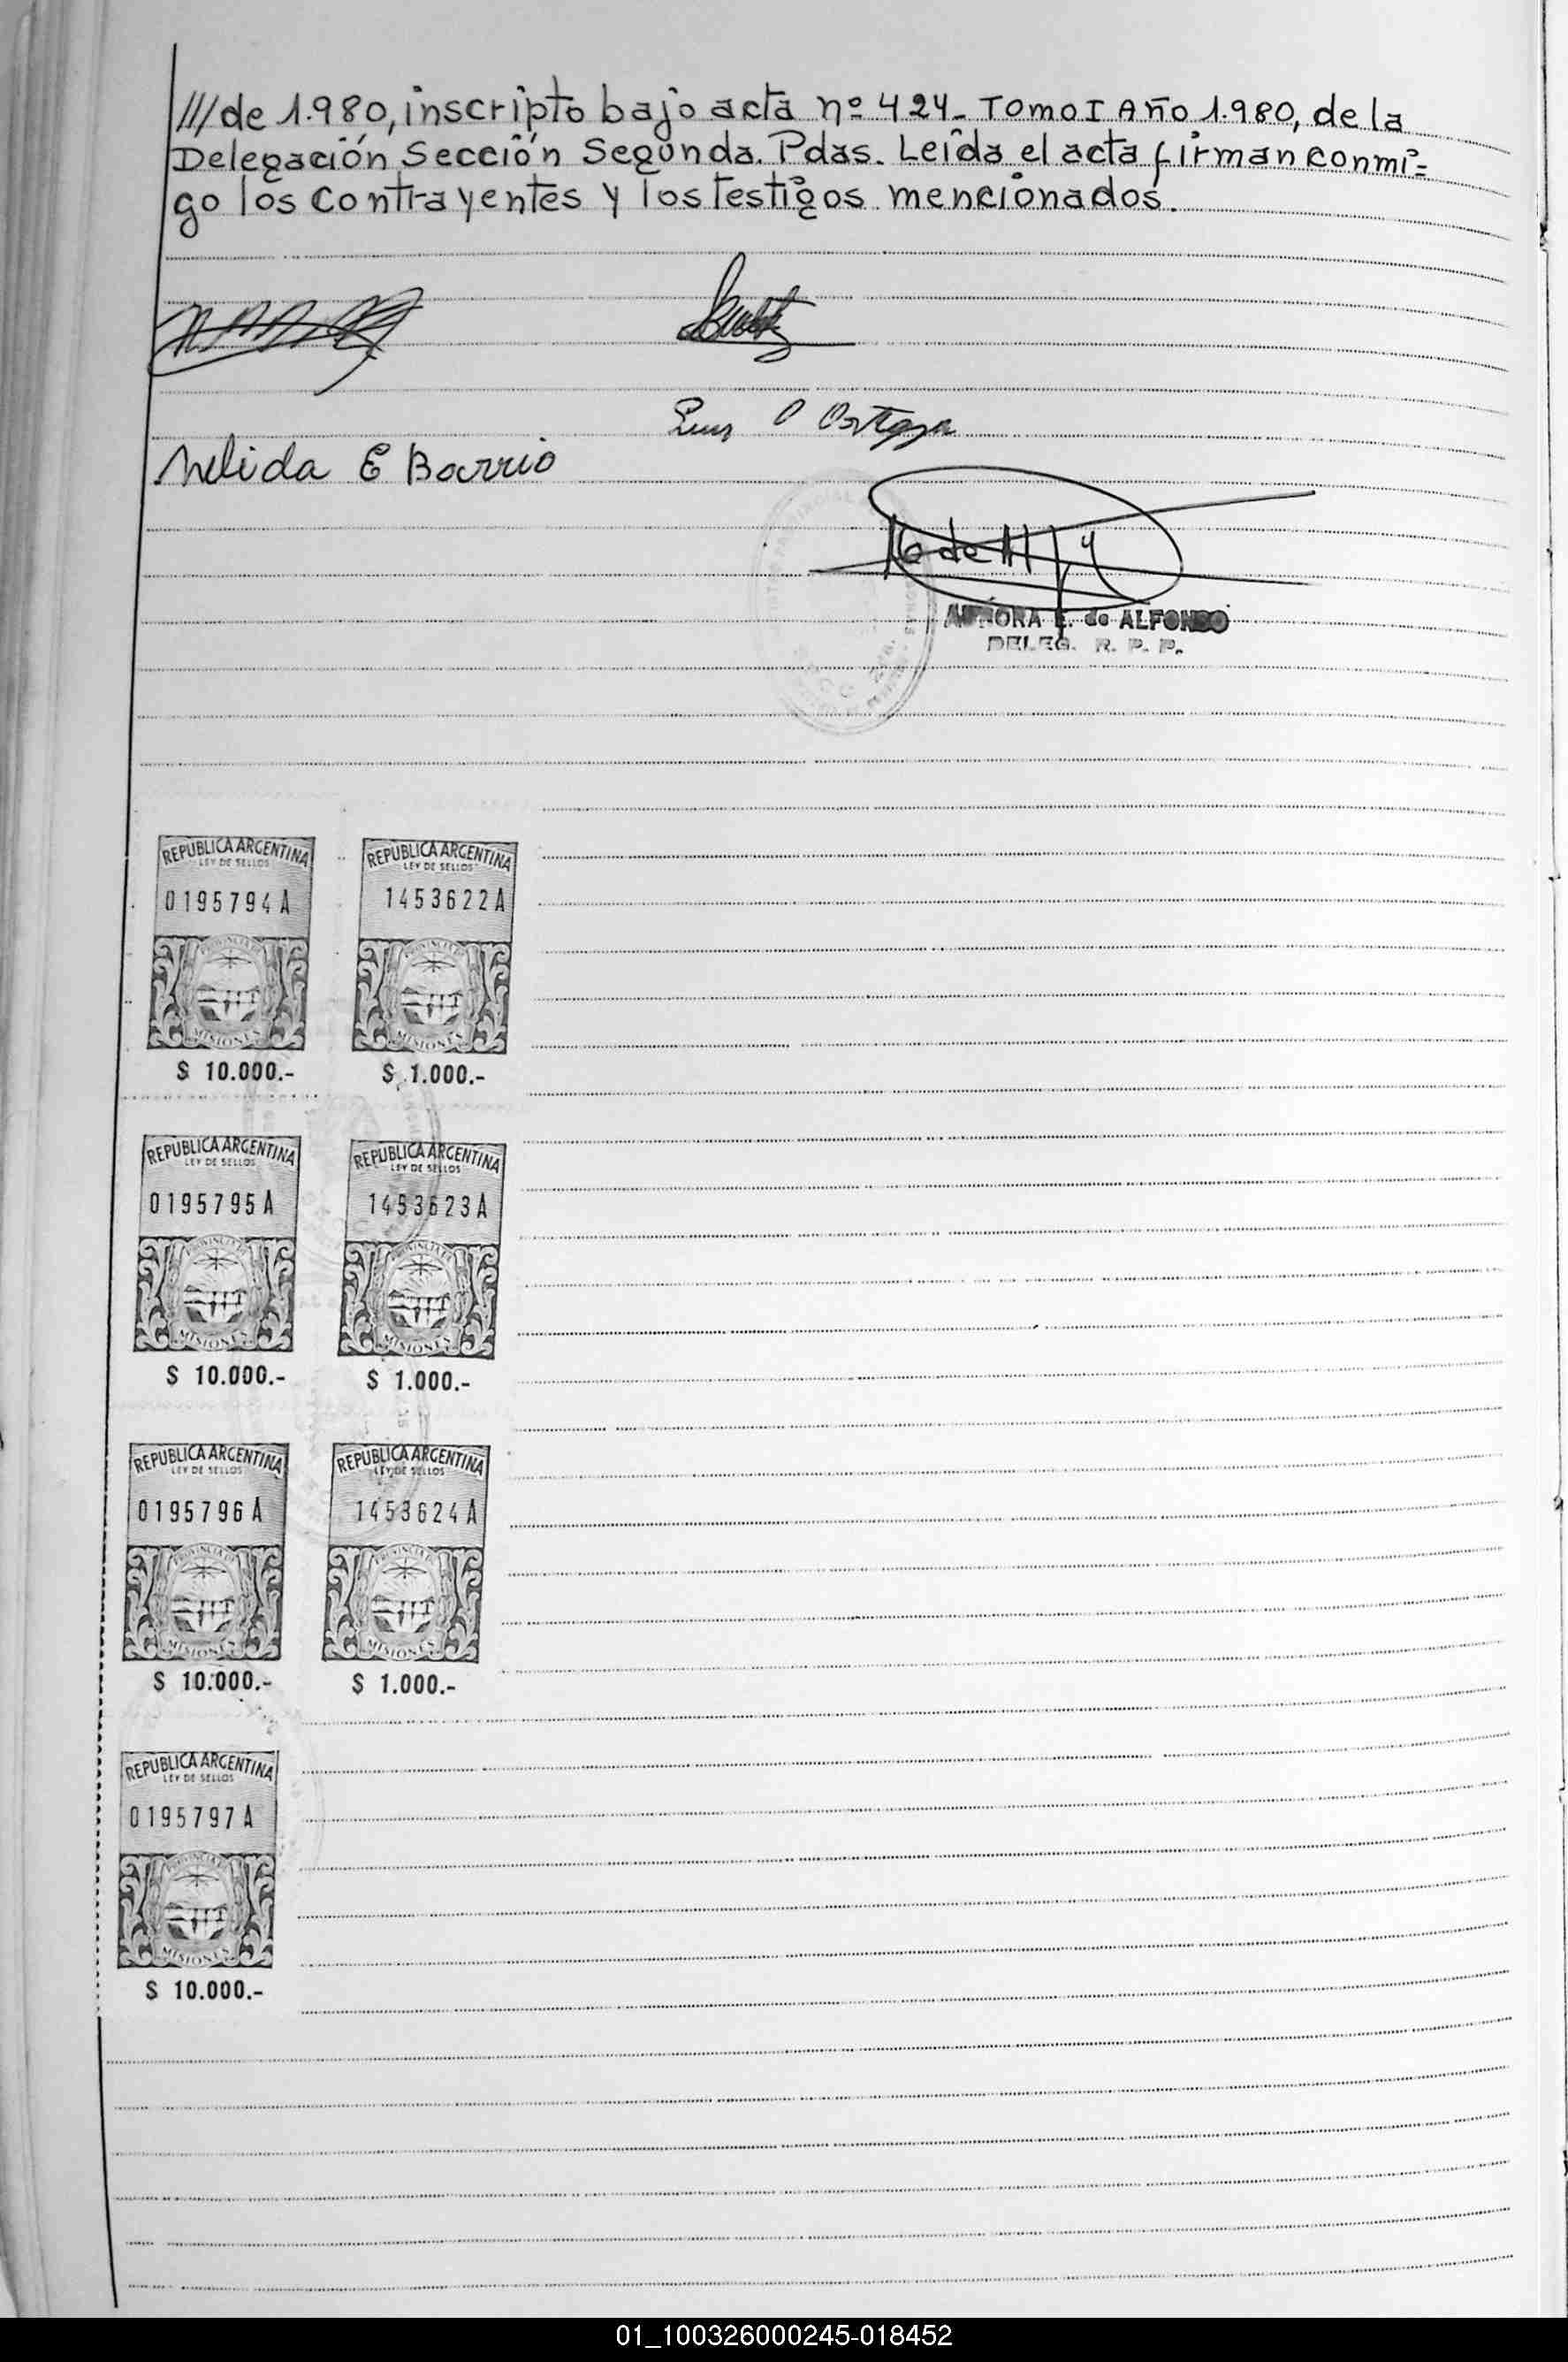 ///de 1.980, inscripto bajo acta nº 424- Tomo I Año 1.980, de la
Delegación Sección Segunda. Pdas. Leída el acta firman conmi=
go los contrayentes y los testigos mencionados.
Ortega
Nelida E Barrio
AURORA E. de ALFONSO
DELEG. R. P. P.
REPUBLICA ARGENTINA REPUBLICA ARGENTINA
LEY DE SELLOS LEY DE SELLOS
0195794A 1453622A
PROVINCIA DE PROVINCIA DE
MISIONES MISIONES
$ 10.000.- $ 1.000.-
REPUBLICA ARGENTINA REPUBLICA ARGENTINA
LEY DE SELLOS LEY DE SELLOS
0195795A 1453623A
PROVINCIA DE PROVINCIA DE
MISIONES MISIONES
$ 10.000.- $ 1.000.-
REPUBLICA ARGENTINA REPUBLICA ARGENTINA
LEY DE SELLOS LEY DE SELLOS
0195796A 1453624A
PROVINCIA DE PROVINCIA DE
MISIONES MISIONES
$ 10.000.- $ 1.000.-
REPUBLICA ARGENTINA
LEY DE SELLOS
0195797A
PROVINCIA DE
MISIONES
$ 10.000.-
01_100326000245-018452